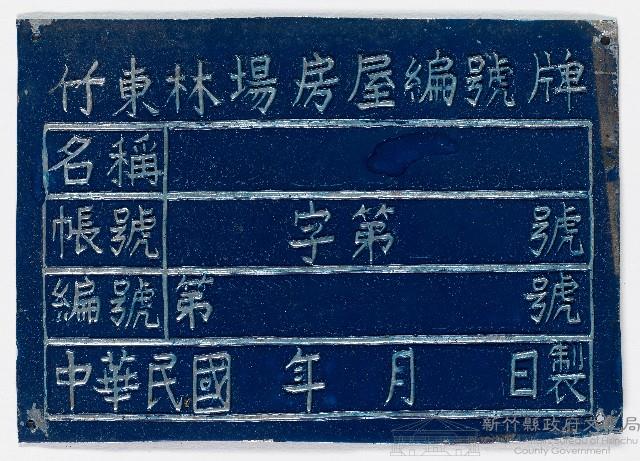 竹東林場房屋編號牌
名稱
帳號 字第 號
編號 第 號
中華民國 年 月 日製
新竹縣政府文化局
County Government